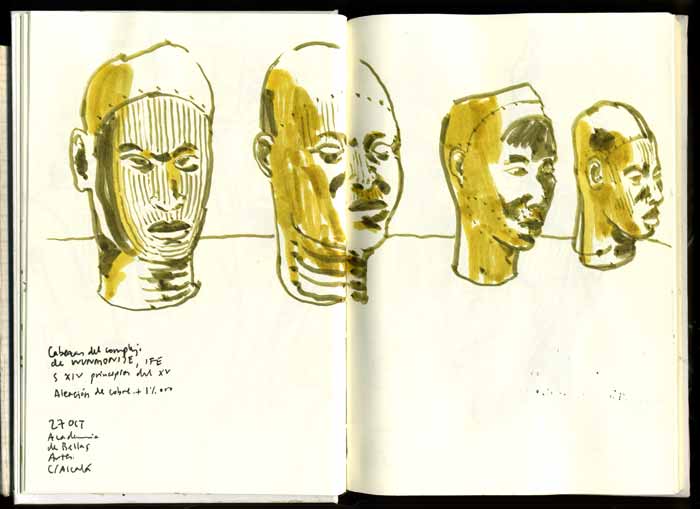 Cabezas del complejo
de WUNMONIJE, IFE
S XIV principios del XV
Aleación de cobre + 1% oro
27 OCT
Academia
de Bellas
Artes.
C/Alcalá